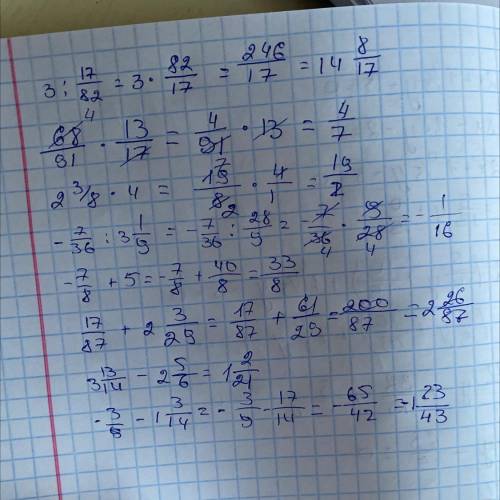 3 : 17/82 = 3 · 82/17 = 246/17 = 14 8/17
68/91 · 13/17 = 4/91 · 13 = 4/7
2 3/8 · 4 = 19/8 · 4/1 = 19/2
- 7/36 : 3 1/9 = - 7/36 : 28/9 = - 7/36 · 9/28 = - 1/16
- 7/8 + 5 = - 7/8 + 40/8 = 33/8
17/87 + 2 3/29 = 17/87 + 61/29 = 200/87 = 2 26/87
3 13/14 - 2 5/6 = 1 2/21
- 3/9 - 1 3/14 = - 3/9 - 17/14 = - 65/42 = -1 23/43